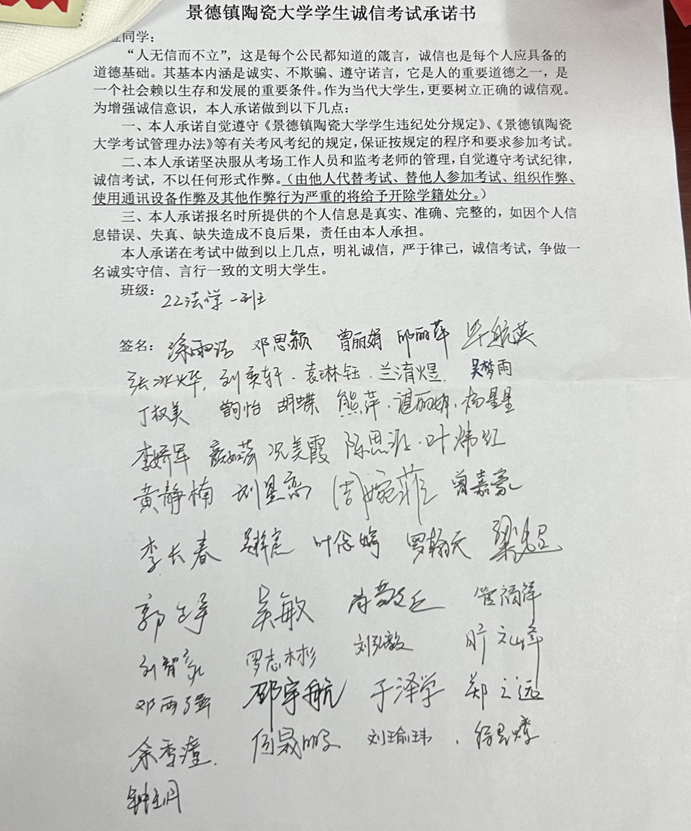 景德镇陶瓷大学学生诚信考试承诺书
同学：
“人无信而不立”，这是每个公民都知道的箴言，诚信也是每个人应具备的
道德基础。其基本内涵是诚实、不欺骗、遵守诺言，它是人的重要道德之一，是
一个社会赖以生存和发展的重要条件。作为当代大学生，更要树立正确的诚信观。
为增强诚信意识，本人承诺做到以下几点：
一、本人承诺自觉遵守《景德镇陶瓷大学学生违纪处分规定》、《景德镇陶瓷
大学考试管理办法》等有关考风考纪的规定，保证按规定的程序和要求参加考试。
二、本人承诺坚决服从考场工作人员和监考老师的管理，自觉遵守考试纪律，
诚信考试，不以任何形式作弊。（由他人代替考试、替他人参加考试、组织作弊、
使用通讯设备作弊及其他作弊行为严重的将给予开除学籍处分。）
三、本人承诺报名时所提供的个人信息是真实、准确、完整的，如因个人信
息错误、失真、缺失造成不良后果，责任由本人承担。
本人承诺在考试中做到以上几点，明礼诚信，严于律己，诚信考试，争做一
名诚实守信、言行一致的文明大学生。
班级：22法学一班
签名：涂雨洁 邓思颖 曾丽娟 邱丽萍 毕航英
张冰烨 刘奕轩 袁琳钰 兰淯煜 吴梦雨
丁权美 胡蝶 熊萍 谌丽娟 杨星星
况美霞 叶炜红
黄静楠 刘星恋 周婉菲 曾嘉豪
李长春 罗翰天
郭 吴敏 管福祥
刘智 罗志彬 刘弘毅
邓雨强 邵宇航 于泽学 郑之远
余香 何晟鹏 刘瑜玮
钟玉月